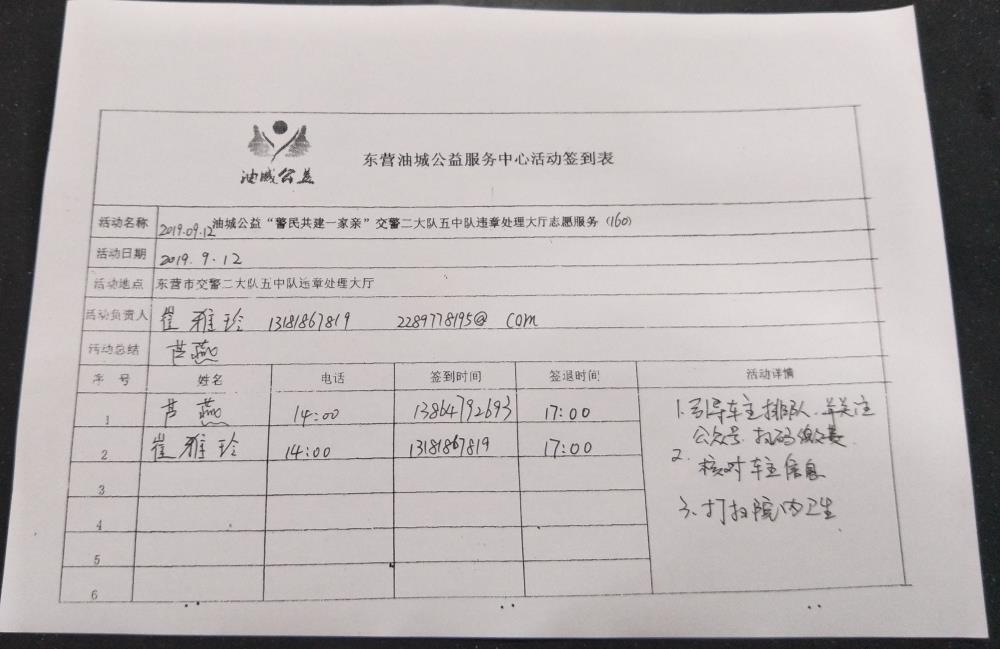 油城公益
东营油城公益服务中心活动签到表
活动名称 2019.09.12油城公益“警民共建一家亲”交警二大队五中队违章处理大厅志愿服务（160）
活动日期 2019.9.12
活动地点 东营市交警二大队五中队违章处理大厅
活动负责人 崔雅玲 13181867819 2289778195@ com
活动总结 芦燕
序号 姓名 电话 签到时间 签退时间 活动详情
1 芦燕 14:00 13864792693 17:00 1.引导车主排队.并关注
公众号.扫码缴费
2 崔雅玲 14:00 13181867819 17:00 2.
核对车主信息
3
3.打扫院内卫生
4
5
6